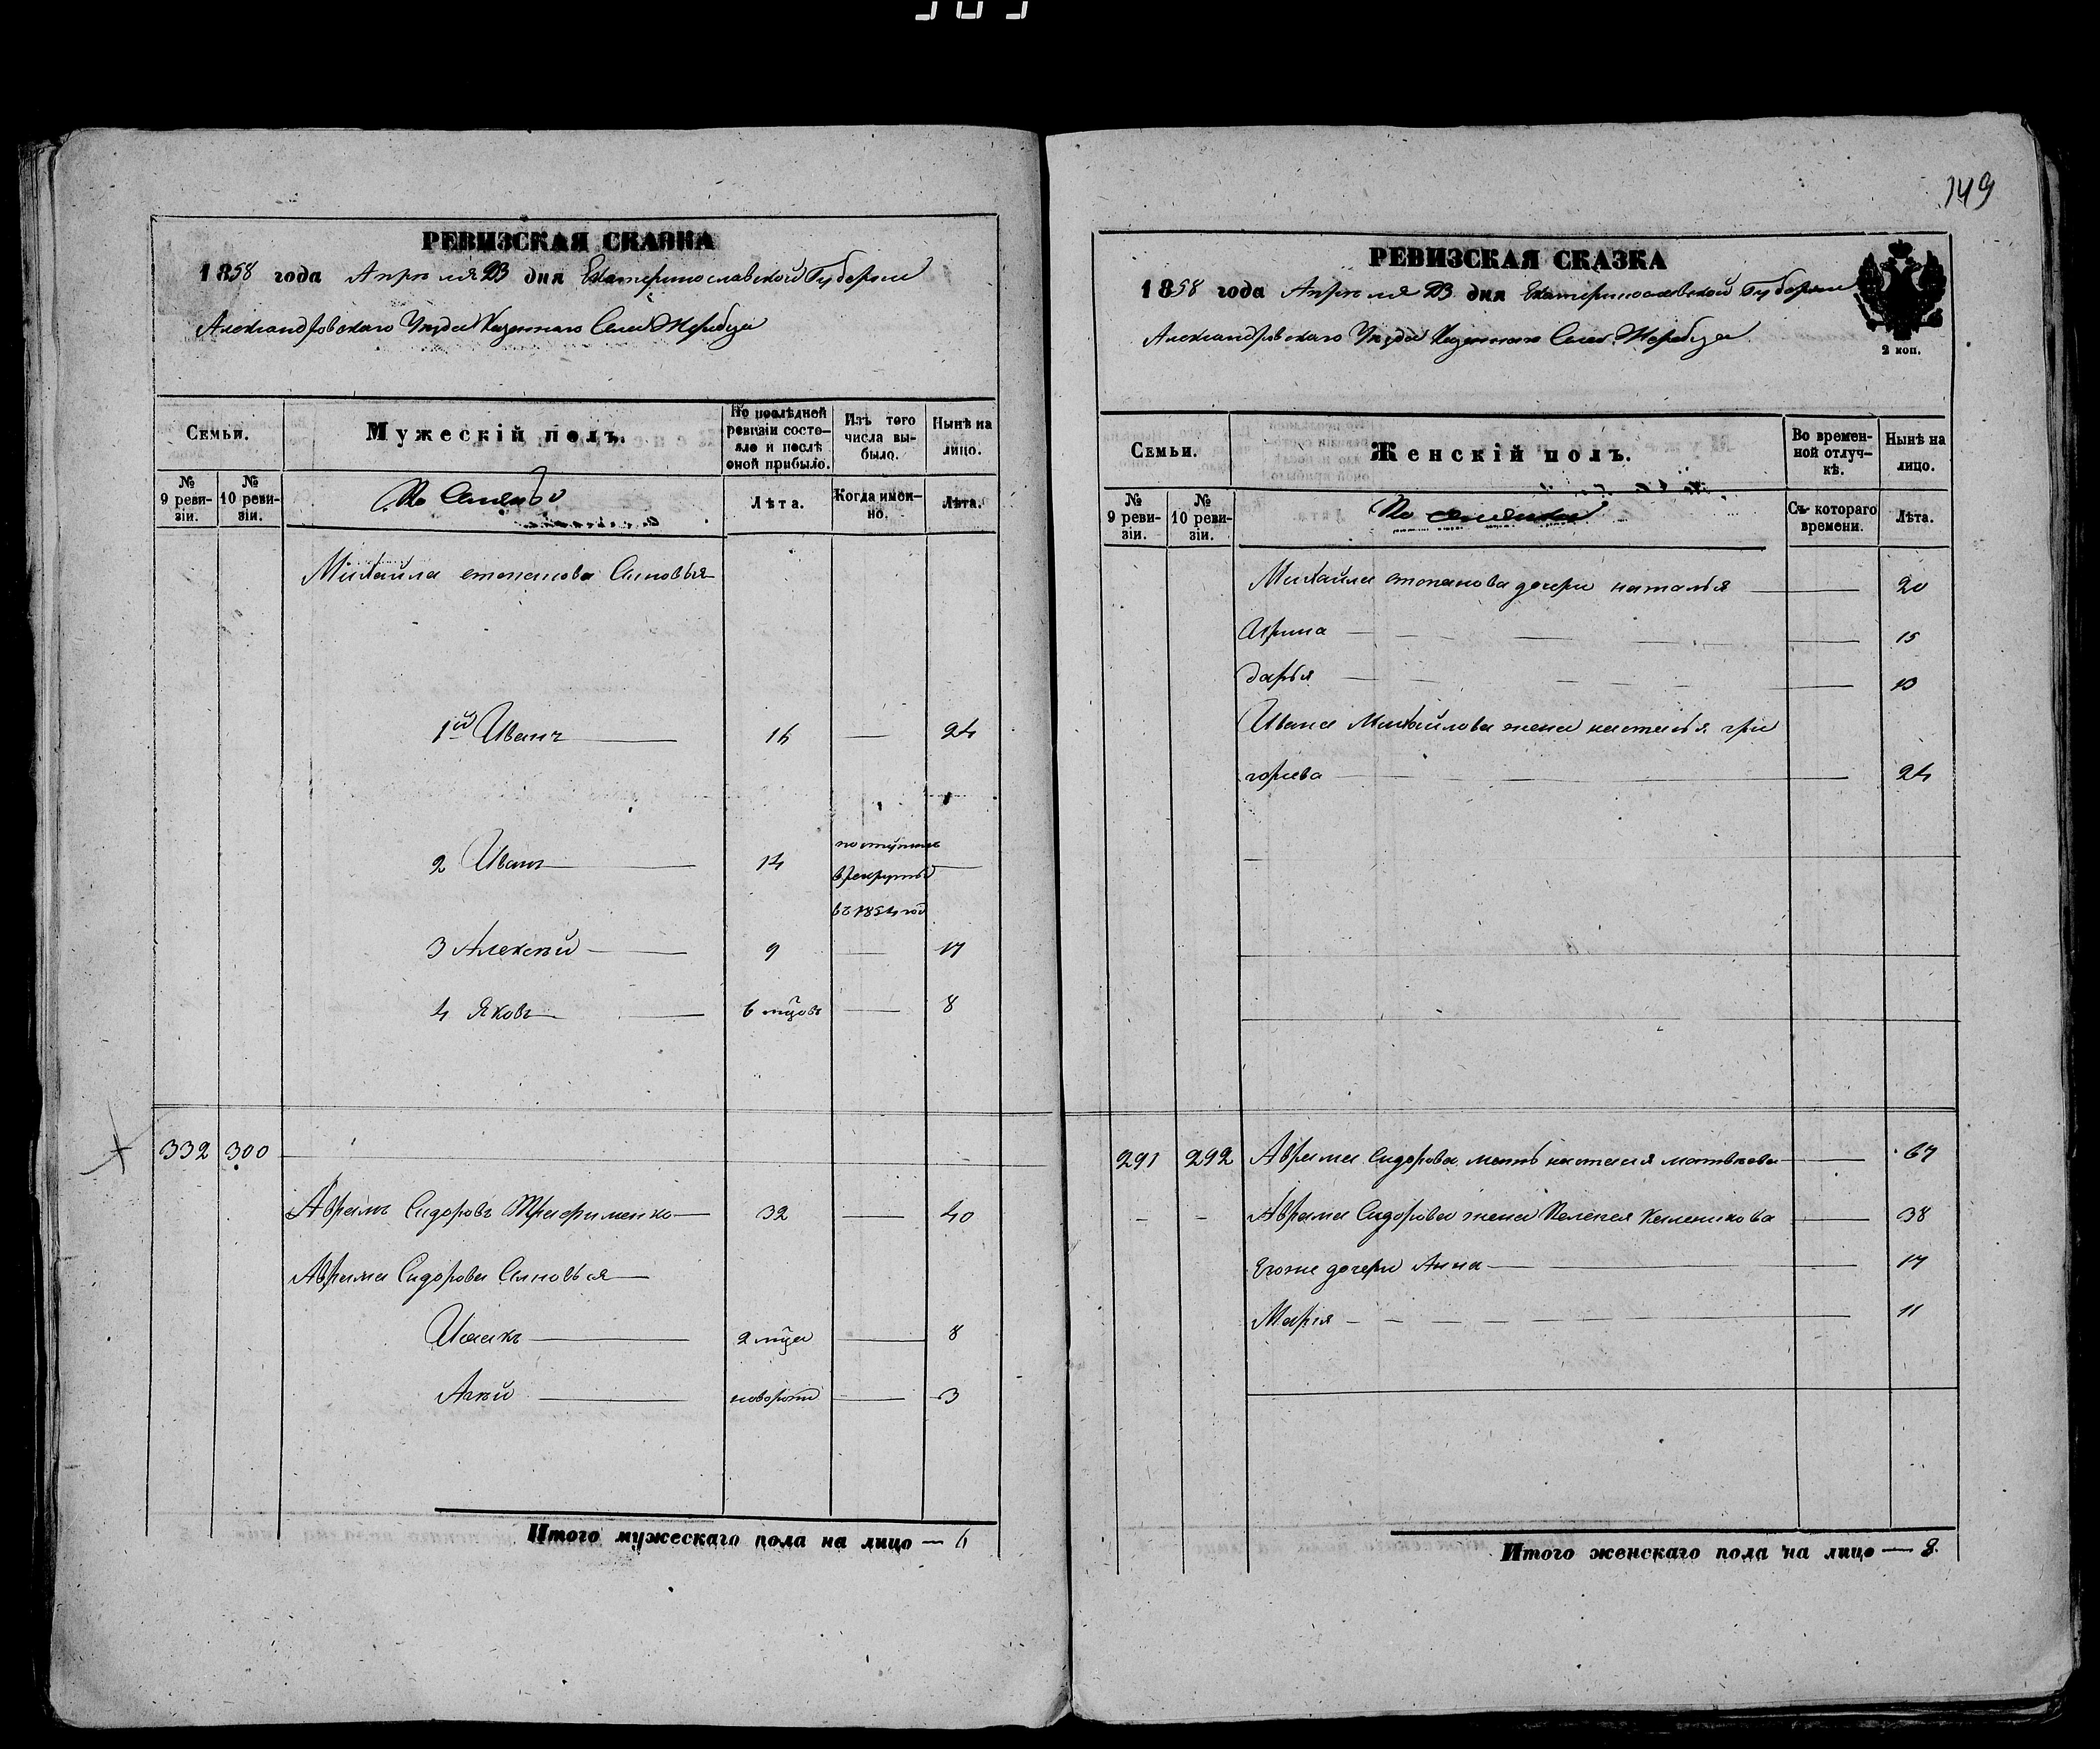 149
РЕВИЗСКАЯ СКАЗКА
1858 года Апрѣля 23 дня Екатеринославской Губернии
Александровскаго Уѣзда Казеннаго Села Жеребца
Семьи.
Мужескій полъ.
По послѣдней ревизіи состояло и послѣ оной прибыло.
Изъ того числа выбыло.
Нынѣ на лицо.
№ 9 ревизіи.
№ 10 ревизіи.
Лѣта.
Когда именно.
Лѣта.
Михайла степанова Сыновья
1й Иванъ 16 — 24
2 Иванъ 14 поступилъ
в рекруты
въ 1854 год
3 Алексѣй 9 — 17
4 Яковъ 6 мцовъ — 8
332 300
Аврамъ Сидоровъ Трафименко 32 — 40
Аврама Сидорова Сыновья
Исакъ 2 мца — 8
новорож — 3
Итого мужескаго пола на лицо — 6
РЕВИЗСКАЯ СКАЗКА
1858 года Апрѣля 23 дня Екатеринославской Губернии
Александровскаго Уѣзда Казеннаго Села Жеребца
2 коп.
Семьи.
Женскій полъ.
Во временной отлучкѣ.
Нынѣ на лицо.
№ 9 ревизіи.
№ 10 ревизіи.
Съ котораго времени.
Лѣта.
Михайла степанова дочери наталья — 20
Ирина — 15
дарья — 10
Ивана Михайлова жена наталья гри
горьева — 24
291 292 Аврама Сидорова мать настасия матвѣева — 67
- - Аврама Сидорова жена Пелагея — 38
Егоже дочери Анна — 17
Марья — 11
Итого женскаго пола на лицо — 8